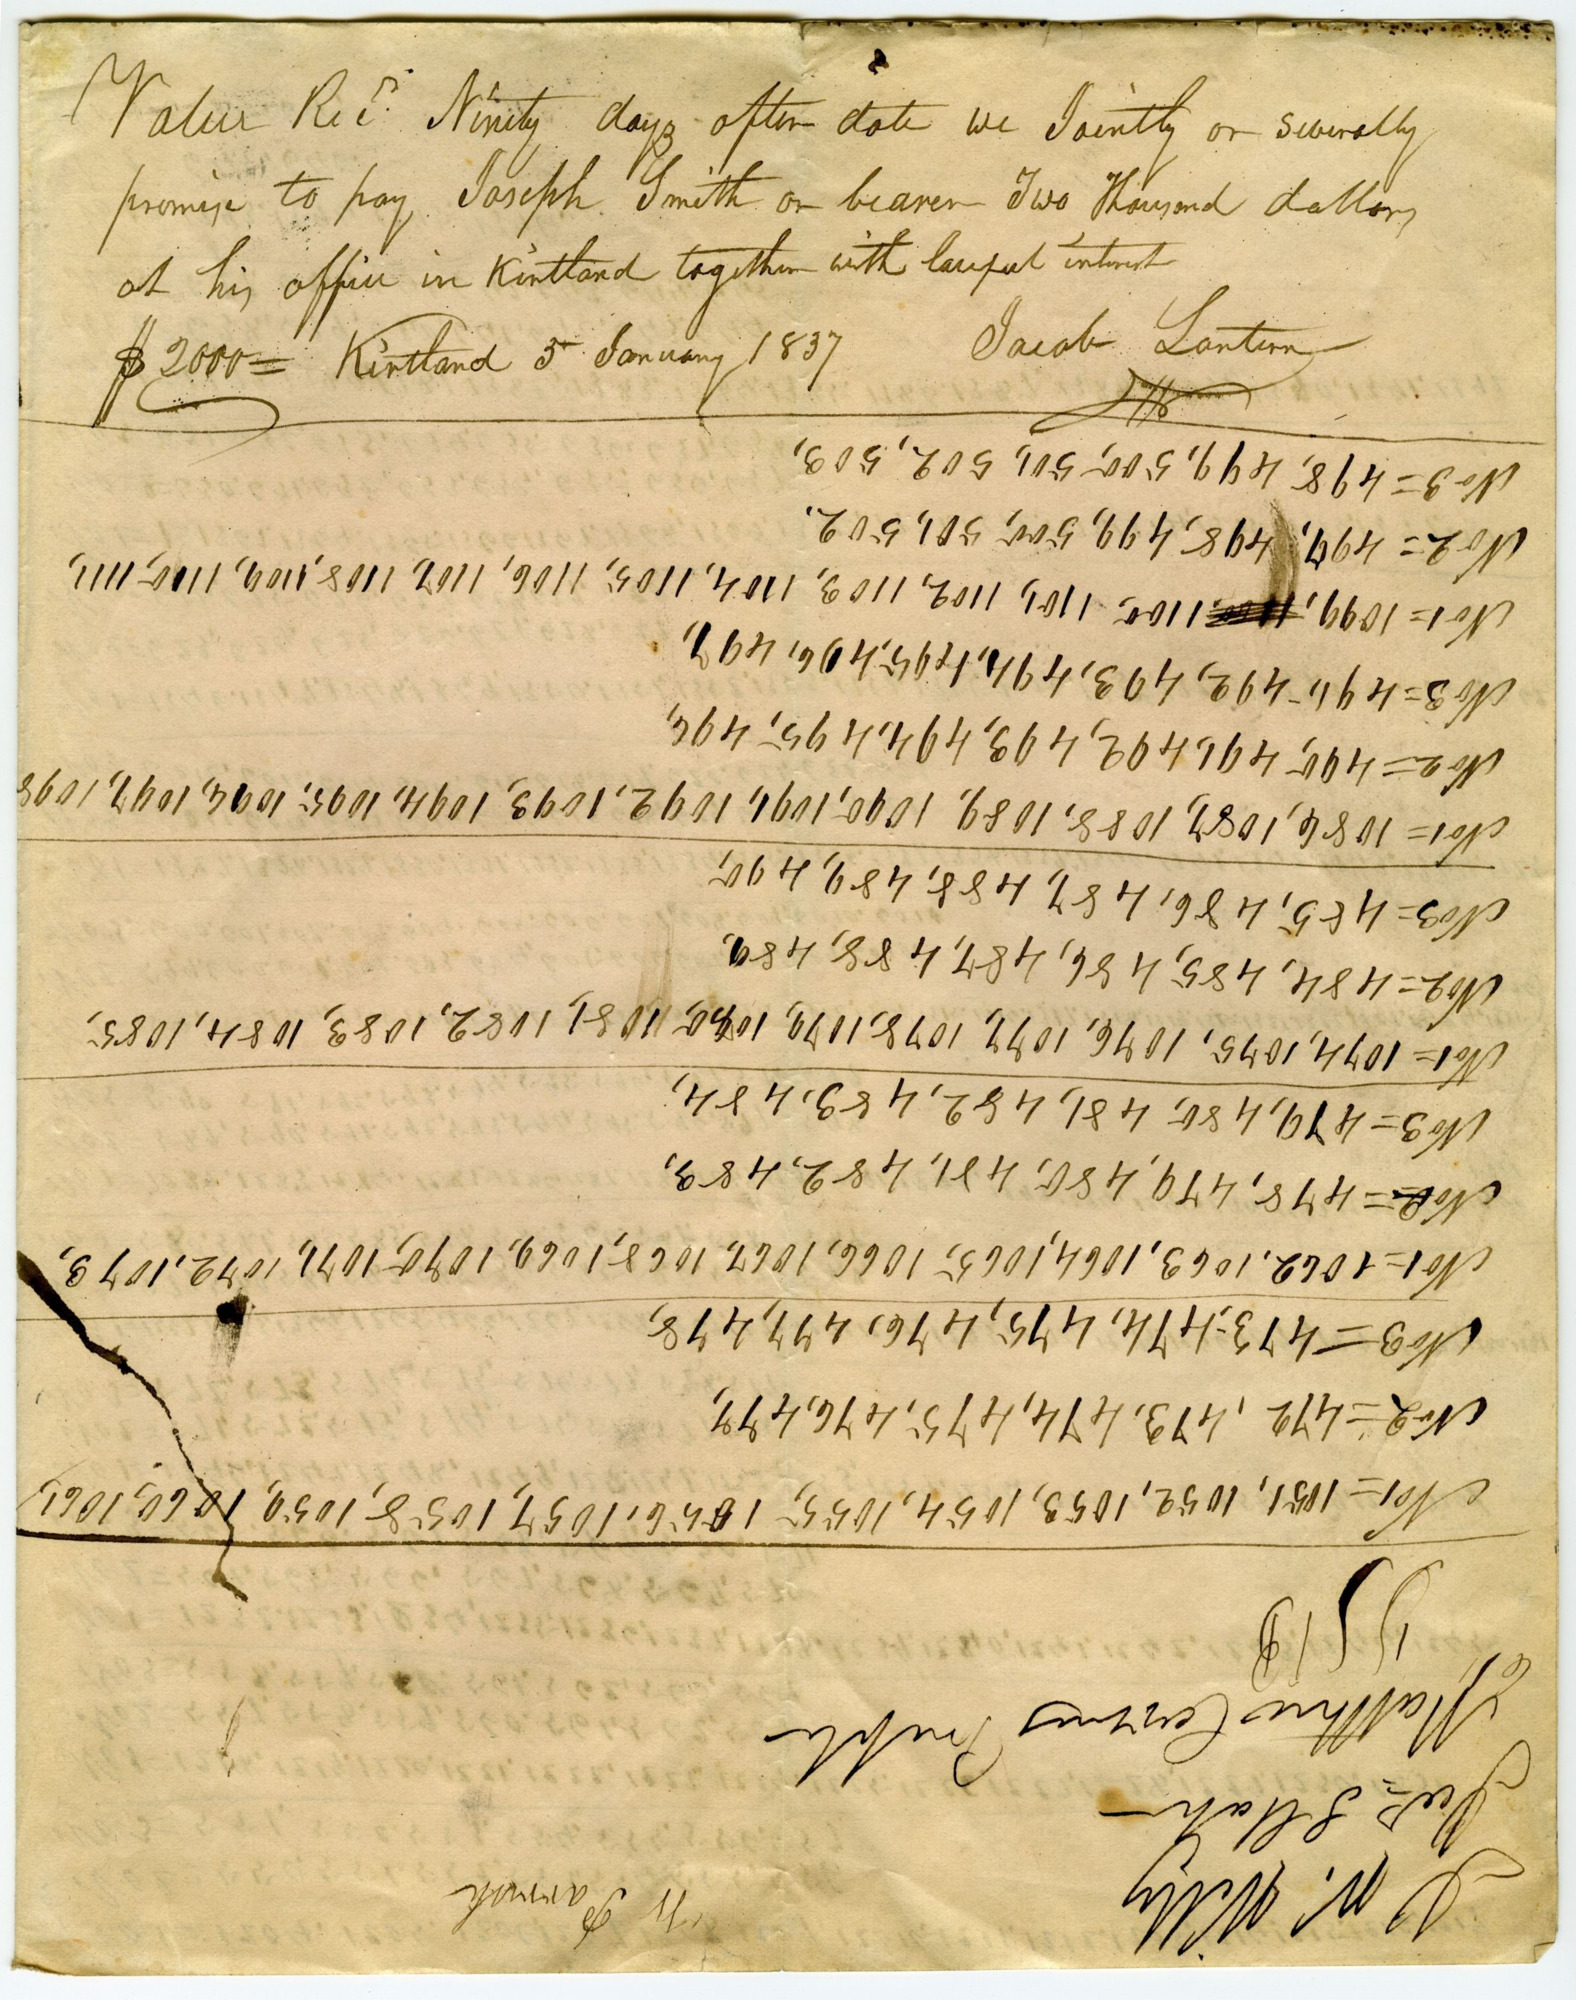 Value Recd. Ninety days after date we Jointly or severally
promise to pay Joseph Smith or bearer Two Thousand dollars
at his office in Kirtland together with lawful interest
$2000= Kirtland 3 January 1837 Jacob Lantern
W Parrish
No1=1051, 1052, 1053, 1054, 1055, 1056, 1057, 1058, 1059, 1060, 1061,
No2=472, 473, 474, 475, 476, 477,
No3=473, 474, 475, 476, 477, 478,
No1=1062, 1063, 1064, 1065, 1066, 1067, 1068, 1069, 1070, 1071, 1072, 1073,
No2=478, 479, 480, 481, 482, 483,
No3=479, 480, 481, 482, 483, 484,
No1=1074, 1075, 1076, 1077, 1078, 1079, 1080, 1081, 1082, 1083, 1084, 1085,
No2=484, 485, 486, 487, 488, 489.
No3=485, 486, 487, 488, 489, 490,
No1=1086, 1087, 1088, 1089, 1090, 1091, 1092, 1093, 1094, 1095, 1096, 1097, 1098
No2=490, 491, 492, 493, 494, 495, 496,
No3=491, 492, 493, 494, 495, 496, 497,
No1=1099, 1100, 1101, 1102, 1103, 1104, 1105, 1106, 1107, 1108, 1109, 1110, 1111,
No2=497, 498, 499, 500, 501, 502.
No3=498, 499, 500, 501, 502, 503,